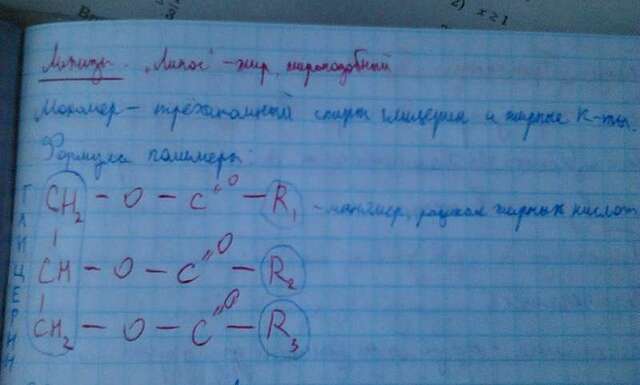 2) x ≥ 1
Липиды. „Липос" – жир, жироподобный
Мономер – трёхатомный спирт глицерин и жирные к-ты
Формула полимера:
CH₂ – O – C =O – R₁ – мономер, радикал жирных кислот
CH – O – C =O – R₂
CH₂ – O – C =O – R₃
ГЛИЦЕРИН